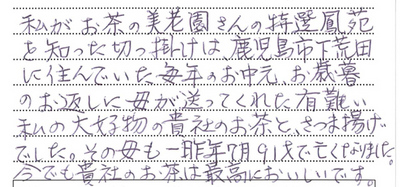 私がお茶の美老園さんの特選鳳苑
を知った切っ掛けは鹿児島市下荒田
に住んでいた毎年のお中元、お歳暮
のお返しに母が送ってくれた有難い
私の大好物の貴社のお茶と、さつま揚げ
でした。その母も一昨年7月91才で亡くなりました。
今でも貴社のお茶は最高においしいです。